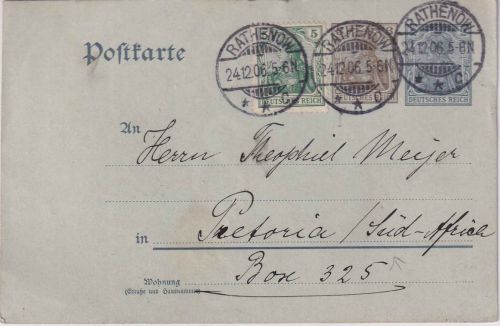 Postkarte
RATHENOW
24.12.06. 5-6N
* * c
5
DEUTSCHES REICH
RATHENOW
24.12.06. 5-6N
* * c
DEUTSCHES REICH
RATHENOW
24.12.06. 5-6N
* * c
DEUTSCHES REICH
An
Herrn Theophiel Meijer
in
Pretoria / Süd-Africa
Wohnung
(Straße und Hausnummer)
Box 325